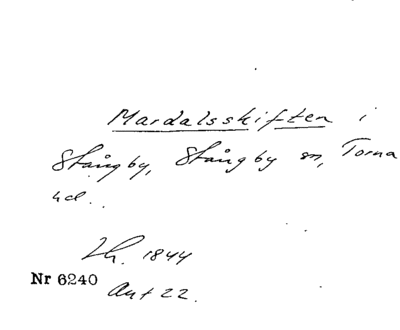 Mardalsskiften i
Stångby, Stångby sn, Torna
hd.
Lh. 1844
Nr 6240
Ant 22.